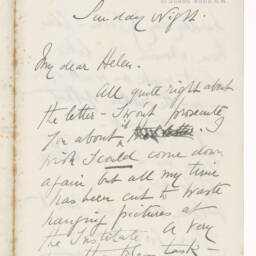 ST JOHNS WOOD. N.W.
Sunday Night.
My dear Helen.
All quite right about
the letter - I won't prosecute
for about I
wish I could come down
again but all my time
has been cut to waste
hanging pictures at
the Institute A very
task -